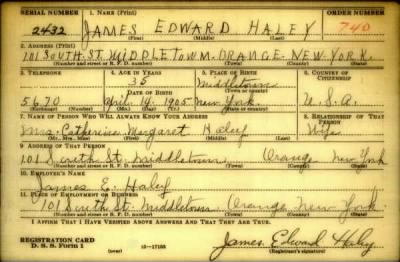 SERIAL NUMBER 1. NAME (Print) ORDER NUMBER
2432 JAMES EDWARD HALEY 740
(First) (Middle) (Last)
2. ADDRESS (Print)
101 SOUTH ST. MIDDLETOWN. ORANGE. NEW YORK.
(Number and street or R. F. D. number) (Town) (County) (State)
3. TELEPHONE 4. AGE IN YEARS 5. PLACE OF BIRTH 6. COUNTRY OF CITIZENSHIP
35 Middletown
DATE OF BIRTH (Town or county)
5670 April 14 1905 New York. U.S.A.
(Exchange) (Number) (Mo.) (Day) (Yr.) (State or country)
7. NAME OF PERSON WHO WILL ALWAYS KNOW YOUR ADDRESS 8. RELATIONSHIP OF THAT PERSON
Mrs. Catherine Margaret Haley Wife
(Mr., Mrs., Miss) (First) (Middle) (Last)
9. ADDRESS OF THAT PERSON
101 South St. Middletown Orange New York
(Number and street or R. F. D. number) (Town) (County) (State)
10. EMPLOYER'S NAME
James E. Haley
11. PLACE OF EMPLOYMENT OR BUSINESS
101 South St. Middletown Orange New York
(Number and street or R. F. D. number) (Town) (County) (State)
I AFFIRM THAT I HAVE VERIFIED ABOVE ANSWERS AND THAT THEY ARE TRUE.
REGISTRATION CARD
D. S. S. FORM 1 (over) 16-17105 James Edward Haley
(Registrant's signature)